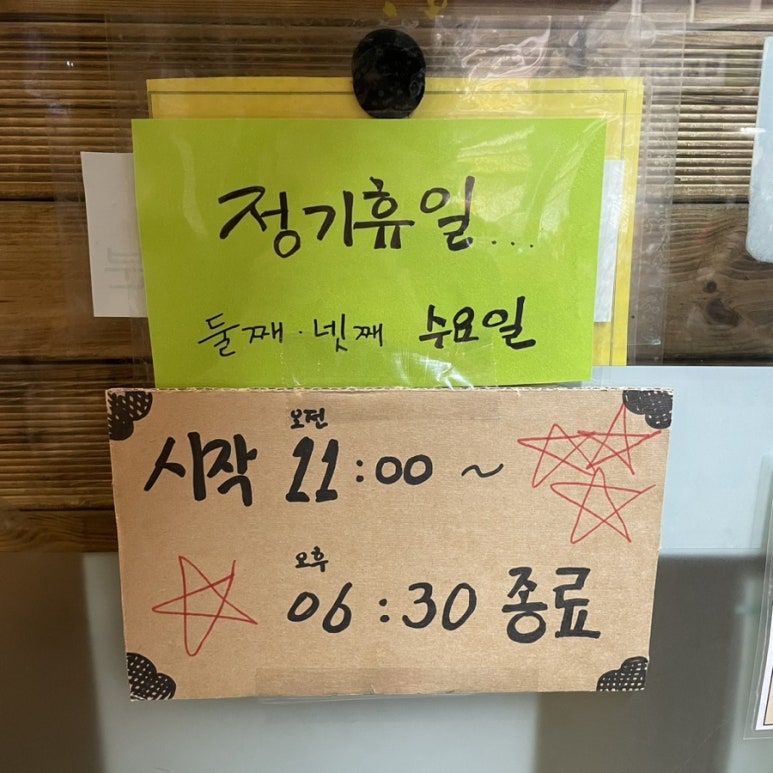 정기휴일...
둘째·넷째 수요일
오전
시작 11:00 ~
오후
06:30 종료